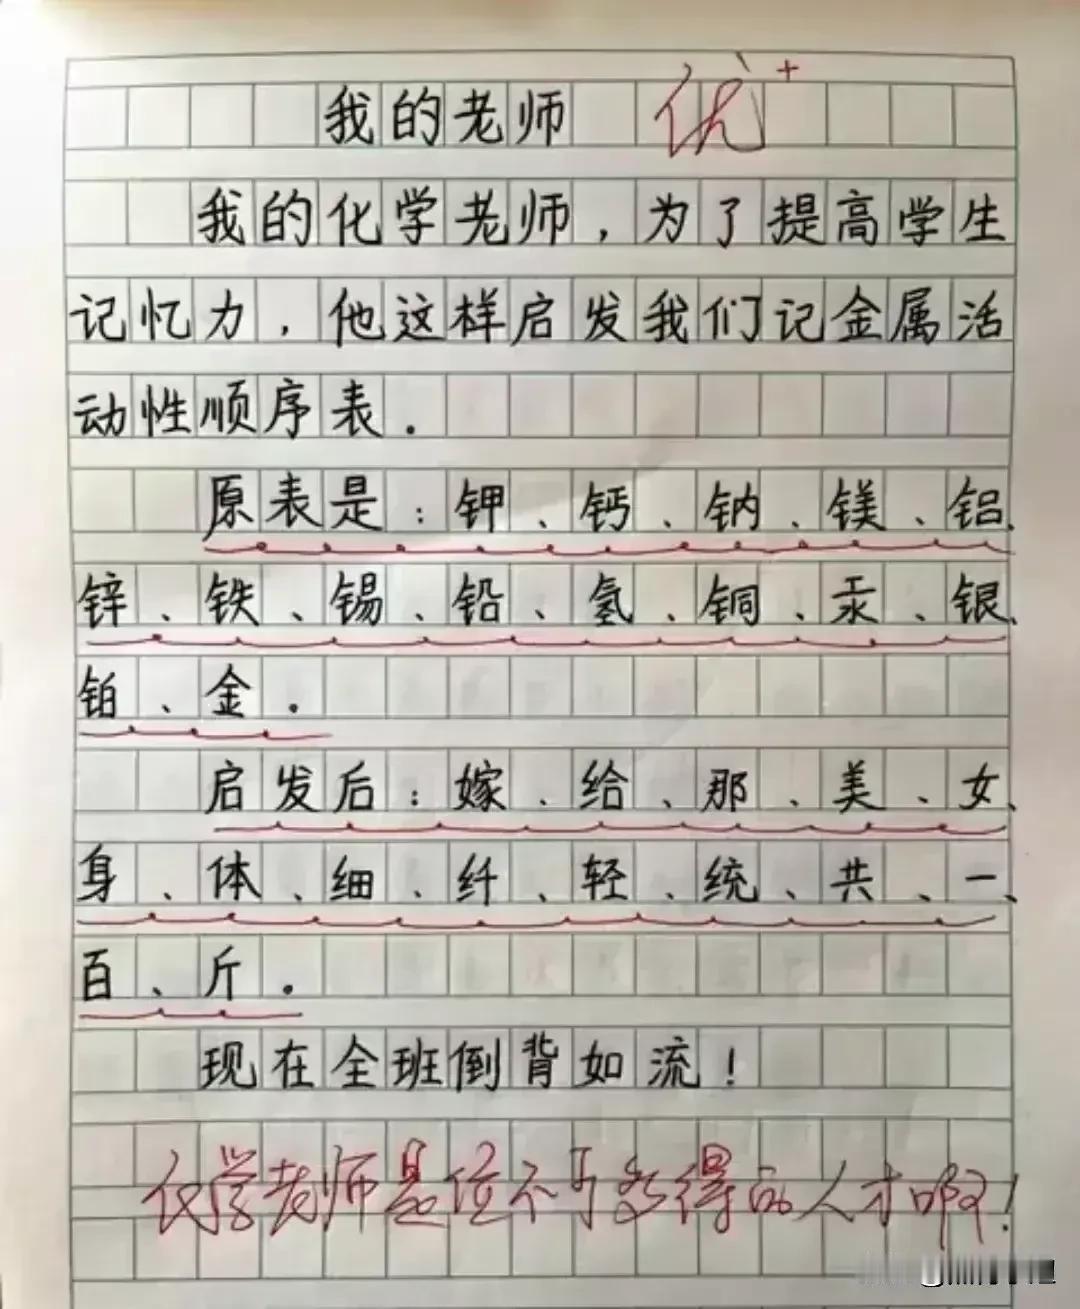 我的老师 优+
我的化学老师，为了提高学生
记忆力，他这样启发我们记金属活
动性顺序表.
原表是：钾、钙、钠、镁、铝、
锌、铁、锡、铅、氢、铜、汞、银、
铂、金.
启发后：嫁、给、那、美、女、
身、体、细、纤、轻、统、共、一、
百、斤.
现在全班倒背如流！
化学老师是位不可多得的人才啊！